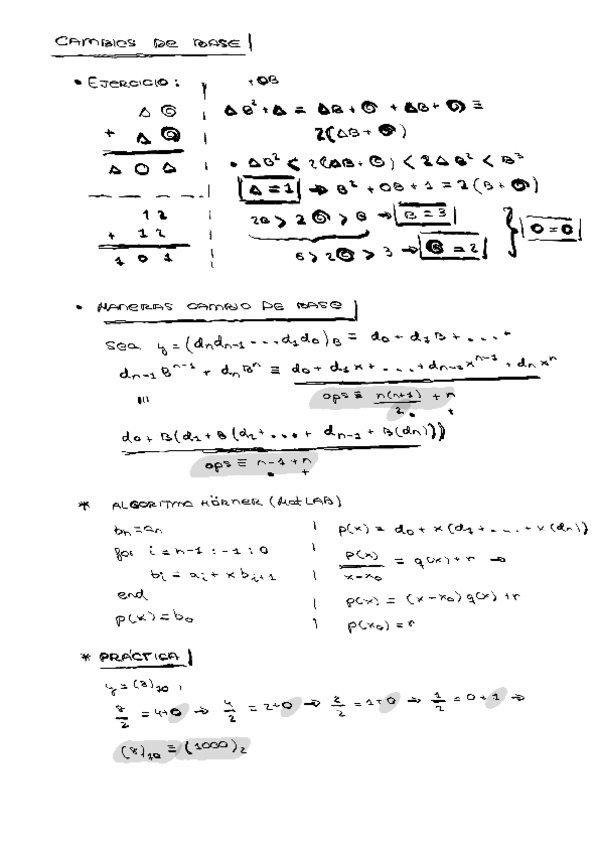 CAMBIOS DE BASE
• EJERCICIO:
+0B
Δ ◎
+ Δ ◎
Δ O Δ
ΔB² + Δ = ΔB + ◎ + ΔB + ◎ ≡
2(ΔB + ◎)
• ΔB² < 2(ΔB + ◎) < 2ΔB² < B³
Δ = 1 ⇒ B² + OB + 1 = 2(B + ◎)
2B > 2◎ > B ⇒ B = 3
6 > 2◎ > 3 ⇒ ◎ = 2
O = 0
1 2
+ 1 2
1 0 1
• MANERAS CAMBIO DE BASE
Sea y = (dndn-1 ... d1d0)B = d0 + d1B + ... +
dn-1 Bⁿ⁻¹ + dn Bⁿ ≡ d0 + d1x + ... + dn-1xⁿ⁻¹ + dn xⁿ
ops ≡ n(n+1)/2 + n
• +
d0 + B(d1 + B(d2 + ... + dn-1 + B(dn)))
ops ≡ n-1 + n
• +
* ALGORITMO HÖRNER (MatLAB)
bn = an
for i = n-1 : -1 : 0
bi = ai + x bi+1
end
p(x) = b0
p(x) = d0 + x(d1 + ... + x(dn))
p(x)/(x-x0) = q(x) + r ⇒
p(x) = (x-x0) q(x) + r
p(x0) = r
* PRÁCTICA
y = (8)10 ;
8/2 = 4+0 ⇒ 4/2 = 2+0 ⇒ 2/2 = 1+0 ⇒ 1/2 = 0+1 ⇒
(8)10 ≡ (1000)2